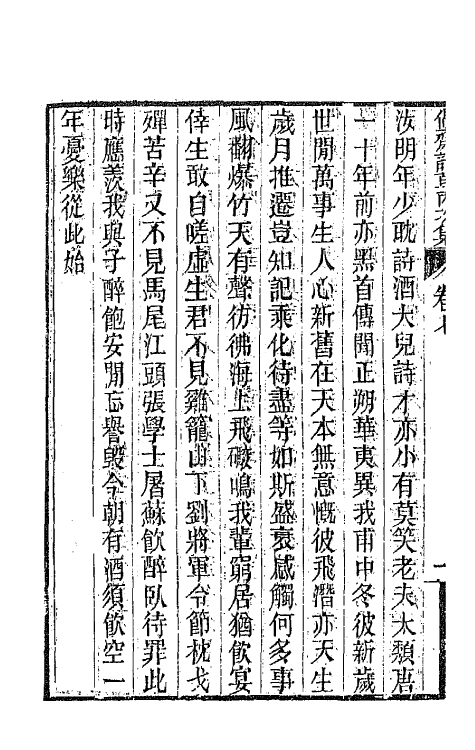 偶齋詩草內次集 卷七 十一
汝明年少耽詩酒大兒詩才亦小有莫笑老夫太頽唐
二十年前亦黑首傳聞正朔華夷異我甫中冬彼新歲
世閒萬事生人心新舊在天本無意慨彼飛潛亦天生
歲月推遷豈知記乘化待盡等如斯盛衰感觸何多事
風翻爆竹天有聲彷彿海上飛礮鳴我輩窮居猶飲宴
倖生敢自嗟虛生君不見雞籠山下劉將軍令節枕戈
殫苦辛又不見馬尾江頭張學士屠蘇飲醉臥待罪此
時應羨我與子醉飽安閒忘譽毀今朝有酒須飲空一
年憂樂從此始